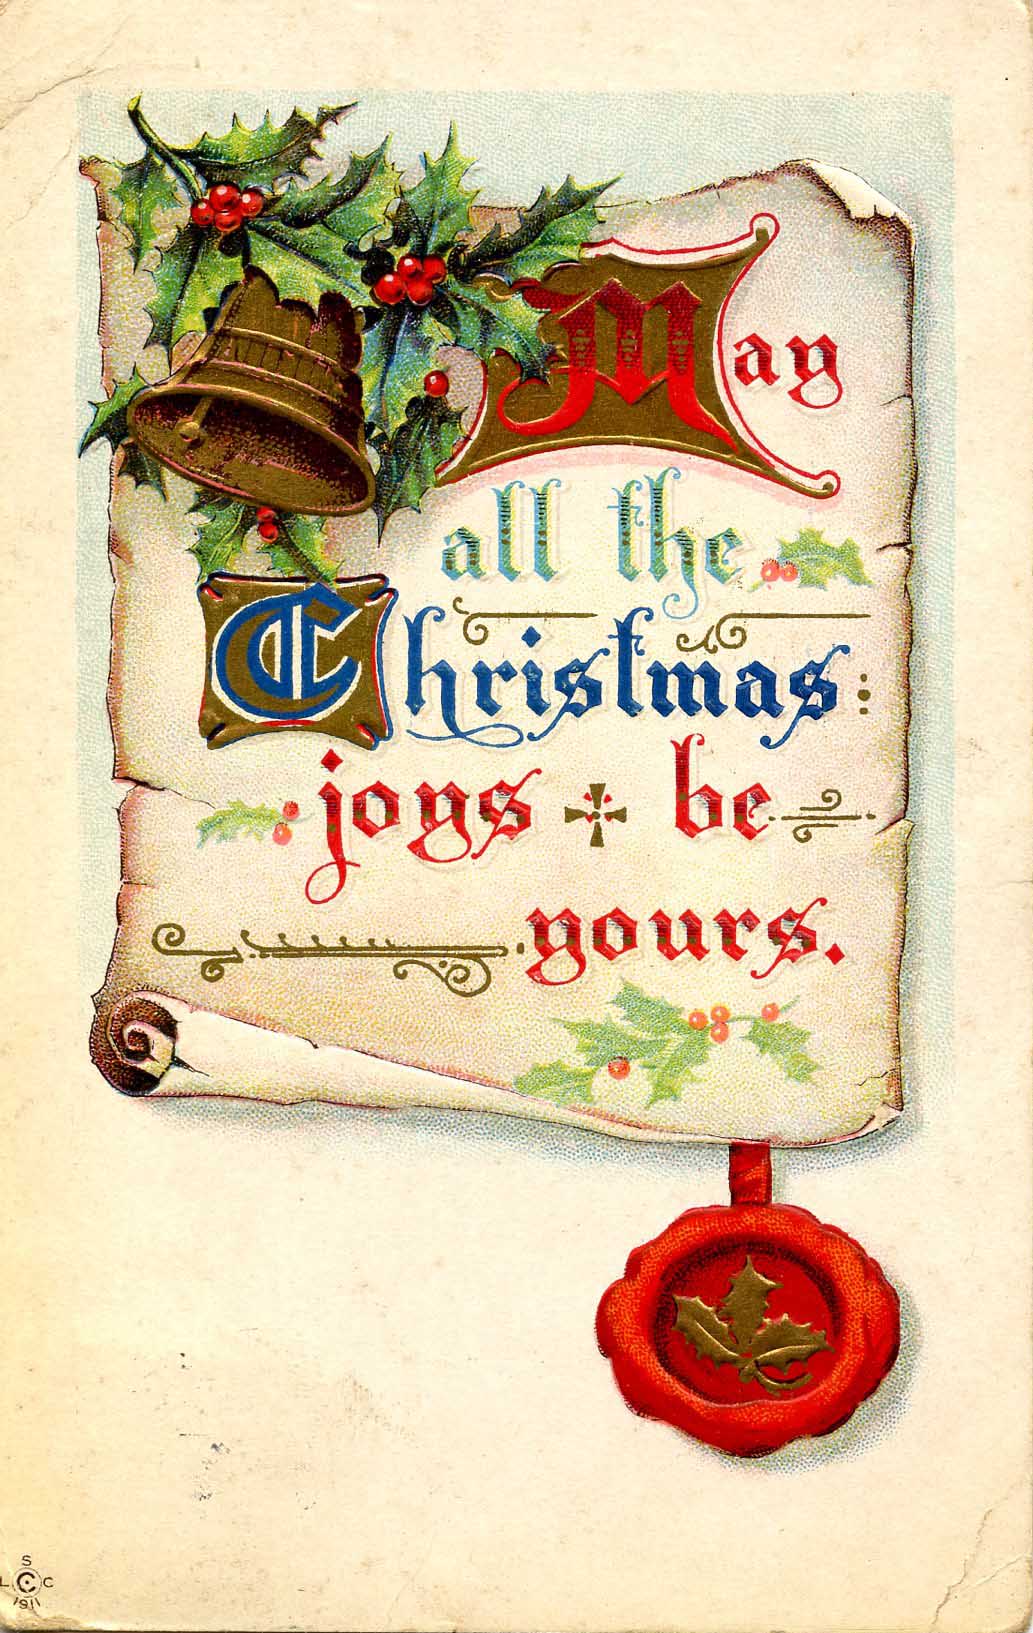 May
all the
Christmas
joys be
yours.
S
L C C
1911